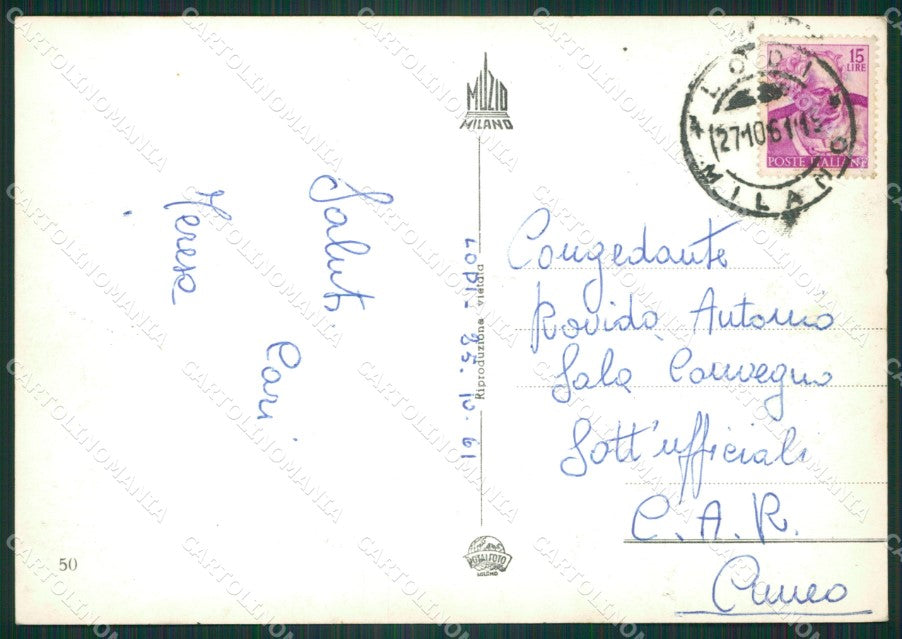 MUZIO
MILANO
LODI
27·10·61·15
MILANO
15
LIRE
POSTE ITALIANE
Saluti Cari
Teresa
LODI - 25.10.61
Riproduzione vietata
Congedante
Rovida Antonio
Sala Convegno
Sott'ufficiali
C.A.R.
Cuneo
50
CARTOLINOMANIA